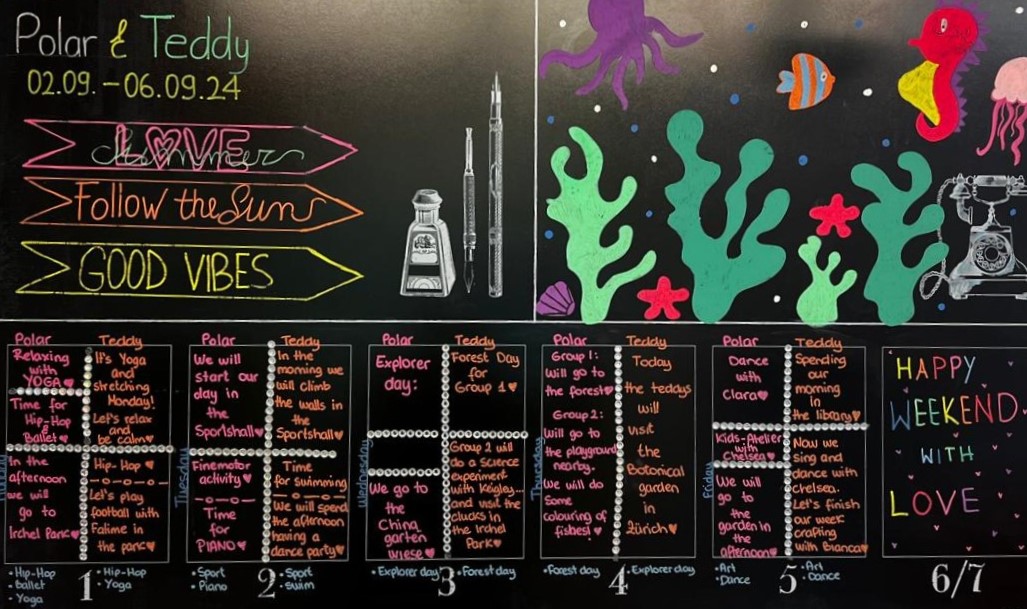 Polar & Teddy
02.09. - 06.09.24
LOVE
Summer
Follow the Sun
GOOD VIBES
Polar
Relaxing
with
YOGA♥
Time for
Hip-Hop
&
Ballet♥
In the
afternoon
we will
go to
Irchel Park♥
Teddy
It's Yoga
and
stretching
Monday!
Let's relax
and
be calm♥
Hip-Hop♥
Let's play
football with
Fatime in
the park♥
Monday
•Hip-Hop
•Ballet
•Yoga
1
•Hip-Hop
•Yoga
Polar
We will
start our
day in
the
Sportshall♥
Finemotor
activity♥
Time
for
PIANO♥
Teddy
In the
morning we
will climb
the walls in
the
Sportshall♥
Time
for swimming
We will spend
the afternoon
having a
dance party♥
Tuesday
•Sport
•Piano
2
•Sport
•Swim
Polar
Explorer
day:
We go to
the
China
garten
wiese♥
Teddy
Forest Day
for
Group 1♥
Group 2 will
do a science
experiment
with Keigley...
and visit the
clucks in
the Irchel
Park♥
Wednesday
•Explorer day
3
•Forest day
Polar
Group 1:
Will go to
the forest♥
Group 2:
Will go to
the playground
nearby.
We will do
some
colouring of
fishes!♥
Teddy
Today
the teddys
will
visit
the
Botanical
garden
in
Zürich♥
Thursday
•Forest day
4
•Explorer day
Polar
Dance
with
Clara♥
Kids-Atelier
with
Chelsea♥
We will
go to
the
garden in
the
afternoon♥
Teddy
Spending
our
morning
in
the library♥
Now we
sing and
dance with
Chelsea.
Let's finish
our week
crafting
with Bianca♥
Friday
•Art
•Dance
5
•Art
•Dance
HAPPY
WEEKEND
WITH
LOVE
6/7